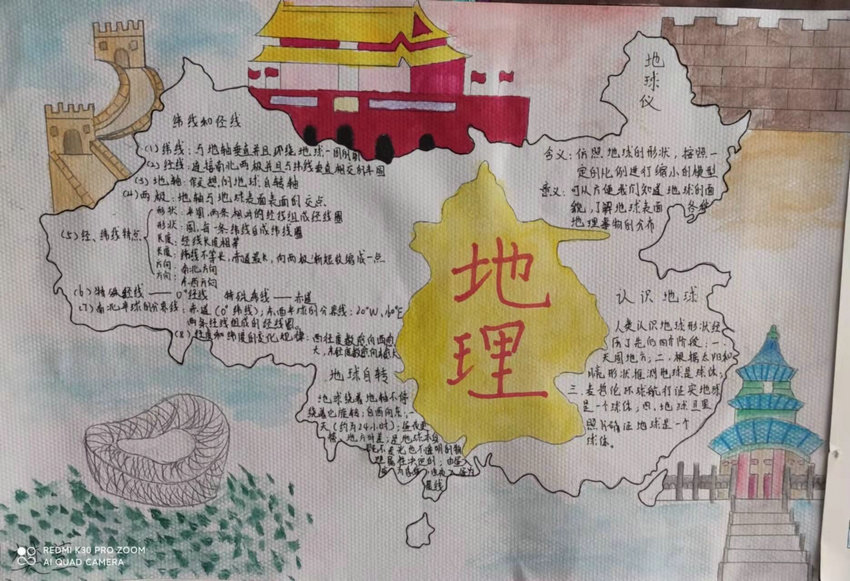 纬线和经线
(1)纬线：与地轴垂直并且环绕地球一周的圆
(2)经线：连接南北两极并且与纬线垂直相交的半圆
(3)地轴：假想的地球自转轴
(4)两极：地轴与地球表面表面的交点
(5)经、纬线特点
形状：半圆,两条相对的经线组成经线圈
形状：圆,每一条纬线自成纬线圈
长度：经线长度相等
长度：纬线不等长,赤道最长,向两极渐短收缩成一点
方向：南北方向
方向：东西方向
(6)特殊经线——0°经线 特殊纬线——赤道
(7)南北半球的分界线：赤道(0°纬线)；东西半球的分界线：20°W、160°E
两条经线组成的经线圈。
(8)经度和纬度的变化规律：
地球自转
地球绕着地轴不停
绕着它旋转；自西向东；一
天(约为24小时)；
昼
地球仪
含义：仿照地球的形状，按照一
定的比例进行缩小的模型
意义：可以方便我们知道地球的面
貌,了解地球表面 各种
地理事物的分布
认识地球
人类认识地球形状经
历了先后四个阶段：一、
天圆地方；二、根据太阳和
月亮形状推测地球是球体；
三、麦哲伦环球航行证实地球
是一个球体；四、地球卫星
照片确证地球是一个
球体。
地
理
REDMI K30 PRO ZOOM
AI QUAD CAMERA